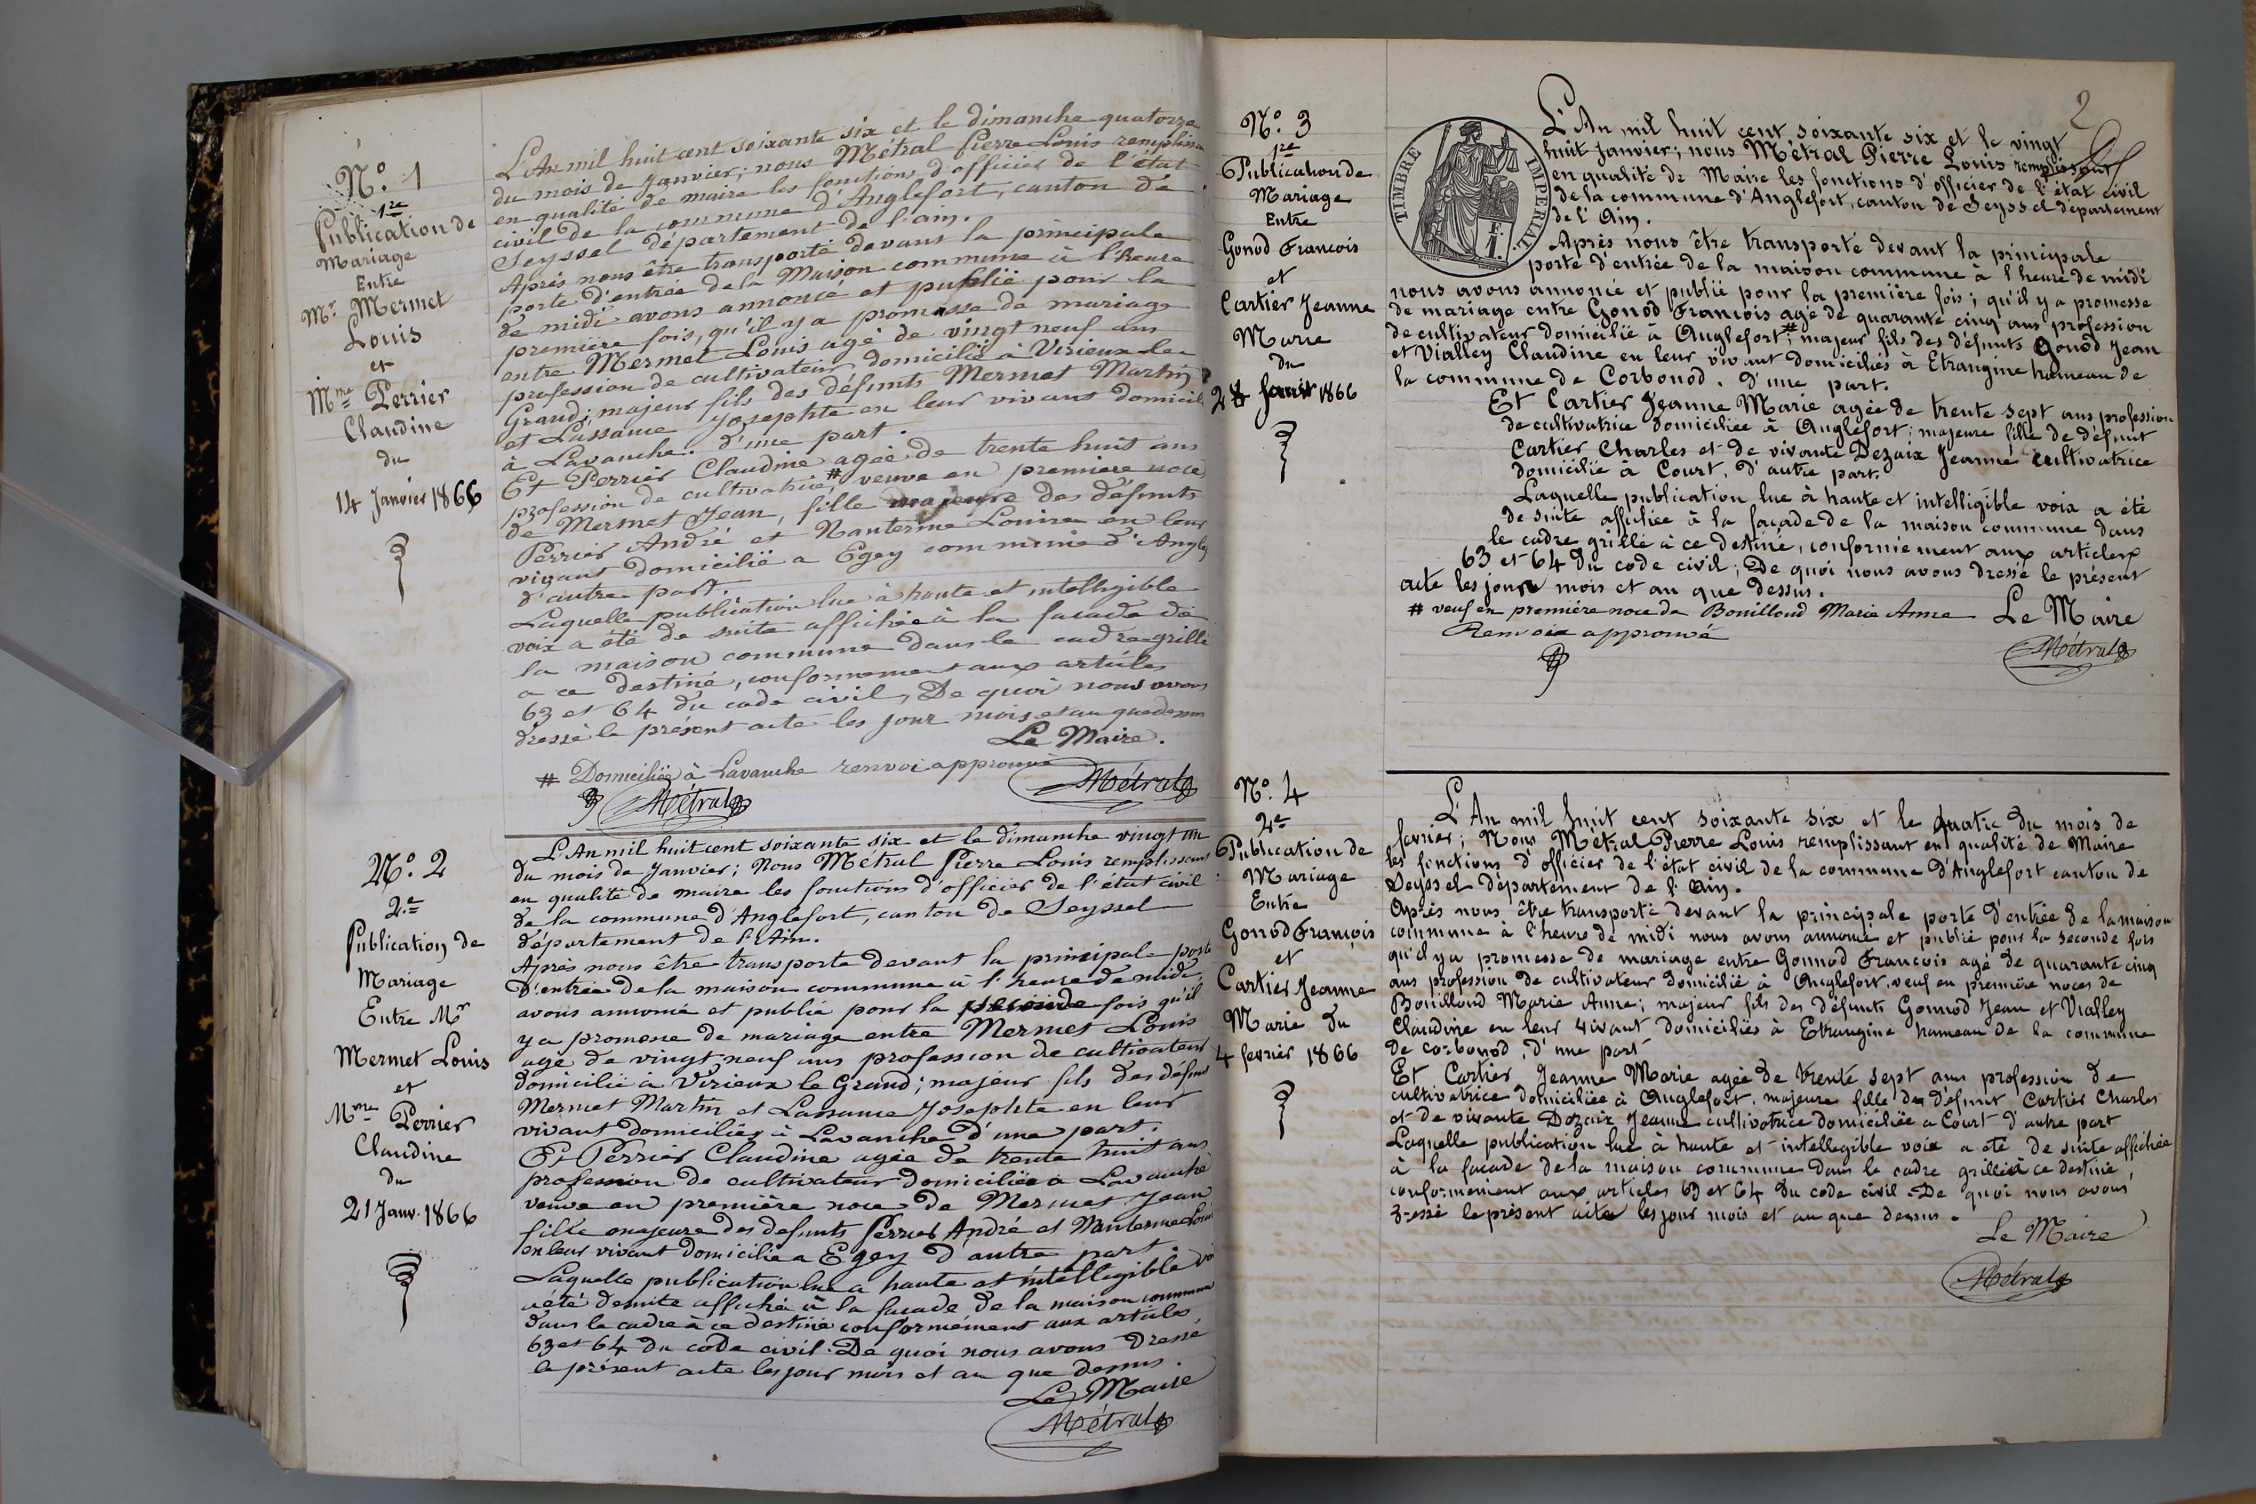 N°. 1
1re
Publication de
Mariage
Entre
Mr Mermet
Louis
et
Mme Perrier
Claudine
du
14 Janvier 1866
L'An mil huit cent soixante six et le dimanche quatorze
du mois de Janvier; nous Métral Pierre Louis remplissan
en qualité de maire les fonctions d'officier de l'état
civil de la commune d'Anglefort, canton de
Seyssel département de l'ain.
Après nous être transporté devant la principale
porte d'entrée de la Maison commune à l'heure
de midi avons annoncé et publié pour la
première fois, qu'il y a promesse de mariage
entre Mermet Louis agé de vingt neuf ans
profession de cultivateur domicilié à Virieux le
Grand; majeur fils des défunts Mermet Martin
et Lassame Josephte en leur vivant domicil
à Lavanche. d'une part.
Et Perrier Claudine agée de trente huit ans
profession de cultivatrice, # veuve en premiere noce
de Mermet Jean, fille majeure des défunts
Perrier André et Nanterme Louise en leur
vivant domicilié a Egey commune d'Angle
d'autre part.
Laquelle publication lue à haute et intelligible
voix a été de suite affichée à la facade de
la maison commune dans le cadre grillé
a ce destiné, conformement aux articles
63 et 64 du code civil, De quoi nous avons
dressé le présent acte les jour mois et an que dessus
Le Maire.
# Domiciliée à Lavanche renvoi approuvé
Métral
Métral
N°. 2
2e
Publication de
Mariage
Entre Mr
Mermet Louis
et
Mme Perrier
Claudine
du
21 Janv. 1866
L'An mil huit cent soixante six et le dimanche vingt un
du mois de Janvier; Nous Métral Pierre Louis remplissant
en qualité de maire les fonctions d'officier de l'état civil
de la commune d'Anglefort, canton de Seyssel
département de l'Ain.
Après nous être transporté devant la principale porte
d'entrée de la maison commune à l'heure de midi
avons annoncé et publié pour la seconde fois qu'il
y a promesse de mariage entre Mermet Louis
agé de vingt-neuf ans profession de cultivateur
domicilié à Virieux le Grand; majeur fils des défunts
Mermet Martin et Lassame Josephte en leur
vivant domiciliés à Lavanche d'une part.
Et Perrier Claudine agée de trente huit ans
profession de cultivateur domiciliée a Lavanche
veuve en première noce de Mermet Jean
fille majeure des defunts Perrier André et Nanterme Louise
en leur vivant domicilié a Egey d'autre part.
Laquelle publication lue a haute et intellegible voi
a été de suite affiché à la facade de la maison commune
dans le cadre à ce destiné conformément aux articles
63 et 64 du code civil. De quoi nous avons dressé
le présent acte les jour mois et an que dessus.
Le Maire
Métral
2
N°. 3
1re
Publication de
Mariage
Entre
Gonod Francois
et
Cartier Jeanne
Marie
du
28 Janvr 1866
TIMBRE IMPERIAL
L'An mil huit cent soixante six et le vingt
huit Janvier; nous Métral Pierre Louis remplissant
en qualité de Maire les fonctions d'officier de l'état civil
de la commune d'Anglefort, canton de Seyssel département
de l'Ain.
Après nous être transporté devant la principale
porte d'entrée de la maison commune à l'heure de midi
nous avons annoncé et publié pour la première fois; qu'il y a promesse
de mariage entre Gonod Francois agé de quarante cinq ans profession
de cultivateur domicilié à Anglefort; # majeur fils des défunts Gonod Jean
et Vialley Claudine en leur vivant domiciliés à Etrangine hameau de
la commune de Corbonod. d'une part.
Et Cartier Jeanne Marie agée de trente sept ans profession
de cultivatrice domiciliée à Anglefort; majeure fille de défunt
Cartier Charles et de vivante Dezaix Jeanne cultivatrice
domicilié à Court, d'autre part.
Laquelle publication lue à haute et intelligible voix a été
de suite affichée à la facade de la maison commune dans
le cadre grillé à ce destiné, conformément aux articles
63 et 64 du code civil; De quoi nous avons dressé le présent
acte les jour mois et an que dessus.
# veuf en première noce de Bouilloud Marie Anne
Renvoix approuvé
Le Maire
Métral
N°. 4
2e
Publication de
Mariage
Entre
Gonod François
et
Cartier Jeanne
Marie du
4 fevrier 1866
L'An mil huit cent soixante six et le quatre du mois de
fevrier; Nous Métral Pierre Louis remplissant en qualité de Maire
les fonctions d'officier de l'état civil de la commune d'Anglefort canton de
Seyssel département de l'Ain.
Après nous être transporté devant la principale porte d'entrée de la maison
commune à l'heure de midi nous avons annoncé et publié pour la seconde fois
qu'il y a promesse de mariage entre Gonnod Francois agé de quarante cinq
ans profession de cultivateur domicilié à Anglefort. veuf en première noces de
Bouilloud Marie Anne; majeur fils des défunts Gonnod Jean et Vialley
Claudine en leur vivant domiciliés à Etrangine hameau de la commune
de corbonod, d'une part
Et Cartier Jeanne Marie agée de trente sept ans profession de
cultivatrice domiciliée à Anglefort, majeure fille de défunt Cartier Charles
et de vivante Dezaix Jeanne cultivatrice domiciliée a Court d'autre part
Laquelle publication lue à haute et intellegible voix a été de suite affichée
à la facade de la maison commune dans le cadre grillé à ce destiné,
conformément aux articles 63 et 64 du code civil. De quoi nous avons
dressé le présent acte les jour mois et an que dessus.
Le Maire
Métral